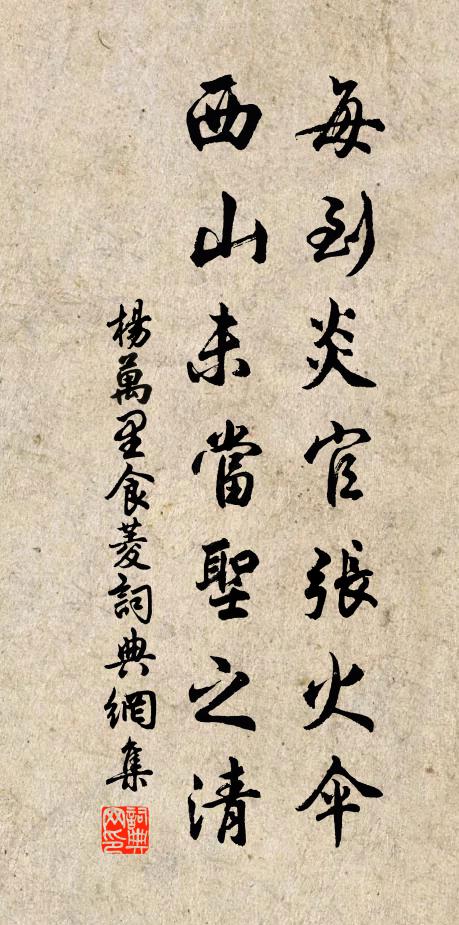 每到炎官張火傘
西山未當聖之清
楊萬里食菱詞典網集
詞典網印